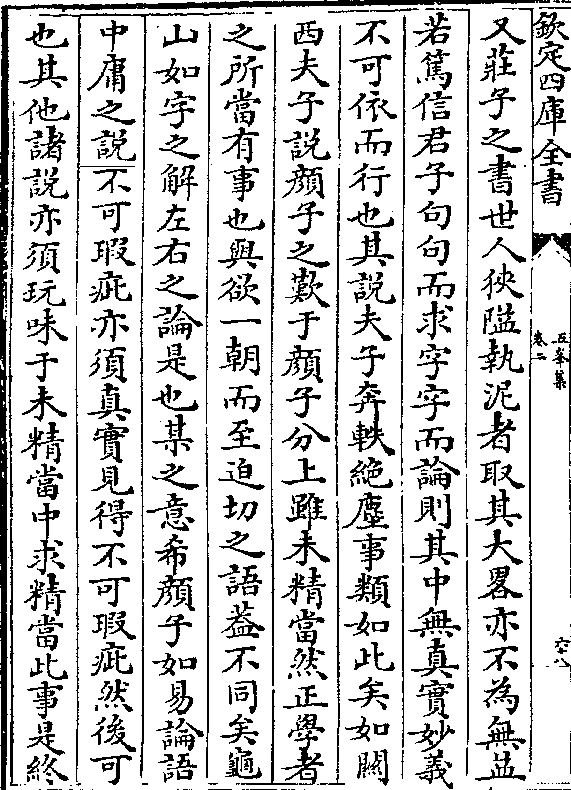 欽定四庫全書
五峯集
卷二
六十八
又莊子之書世人狹隘執泥者取其大畧亦不為無益
若篤信君子句句而求字字而論則其中無真實妙義
不可依而行也其說夫子奔軼絶塵事類如此矣如關
西夫子說顔子之歎于顔子分上雖未精當然正學者
之所當有事也與欲一朝而至迫切之語葢不同矣龜
山如字之解左右之論是也某之意希顔子如易論語
中庸之說不可瑕疵亦須真實見得不可瑕疵然後可
也其他諸說亦須玩味于未精當中求精當此事是終